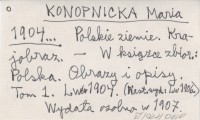 KONOPNICKA Maria
1904... Polskie ziemie. Kra-
jobraz. — W książce zbior.:
Polska. Obrazy i opisy.
Tom 1. Lwów 1904. (Macierzy
Wydała osobno w 1907.